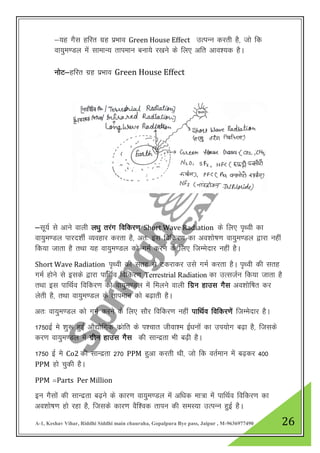 –यह गैस हरित ग्रह प्रभाव Green House Effect उत्पन्न करती है, जो कि
वायुमण्डल में सामान्य तापमान बनाये रखने के लिए अति आवश्यक है।
नोट–हरित ग्रह प्रभाव Green House Effect
Terrestrial Radiation)
Infrared Radiation)
Long Wave Radiation
Short Wave Radiation
Earth
Green House Gases (CO2, CH4
N2O, SF6, HFC
PFC
NF3
–सूर्य से आने वाली लघु तरंग विकिरण Short Wave Radiation के लिए पृथ्वी का
वायुमण्डल पारदर्शी व्यवहार करता है, अतः इस विकिरण का अवशोषण वायुमण्डल द्वारा नहीं
किया जाता है तथा यह वायुमण्डल को गर्म करने के लिए जिम्मेदार नहीं है।
Short Wave Radiation पृथ्वी की सतह से टकराकर उसे गर्म करता है। पृथ्वी की सतह
गर्म होने से इसके द्वारा पार्थिव विकिरण Terrestrial Radiation का उत्सर्जन किया जाता है
तथा इस पार्थिव विकिरण को वायुमण्डल में मिलने वाली ग्रिन हाउस गैस अवशोषित कर
लेती है, तथा वायुमण्डल के तापमान को बढ़ाती है।
अतः वायुमण्डल को गर्म करने के लिए सौर विकिरण नहीं पार्थिव विकिरणें जिम्मेदार है।
1750ई में शुरू हुई औद्योगिक क्रांति के पश्चात जीवाश्म ईधनों का उपयोग बढ़ा है, जिसके
करण वायुमण्डल में ग्रीन हाउस गैसों की सान्द्रता भी बढ़ी है।
1750 ई में Co2 की सान्द्रता 270 PPM हुआ करती थी, जो कि वर्तमान में बढ़कर 400
PPM हो चुकी है।
PPM =Parts Per Million
इन गैसों की सान्द्रता बढ़ने के कारण वायुमण्डल में अधिक मात्रा में पार्थिव विकिरण का
अवशोषण हो रहा है, जिसके कारण वैश्विक तापन की समस्या उत्पन्न हुई है।
A-1, Keshav Vihar, Riddhi Siddhi main chauraha, Gopalpura Bye pass, Jaipur , M-9636977490
26